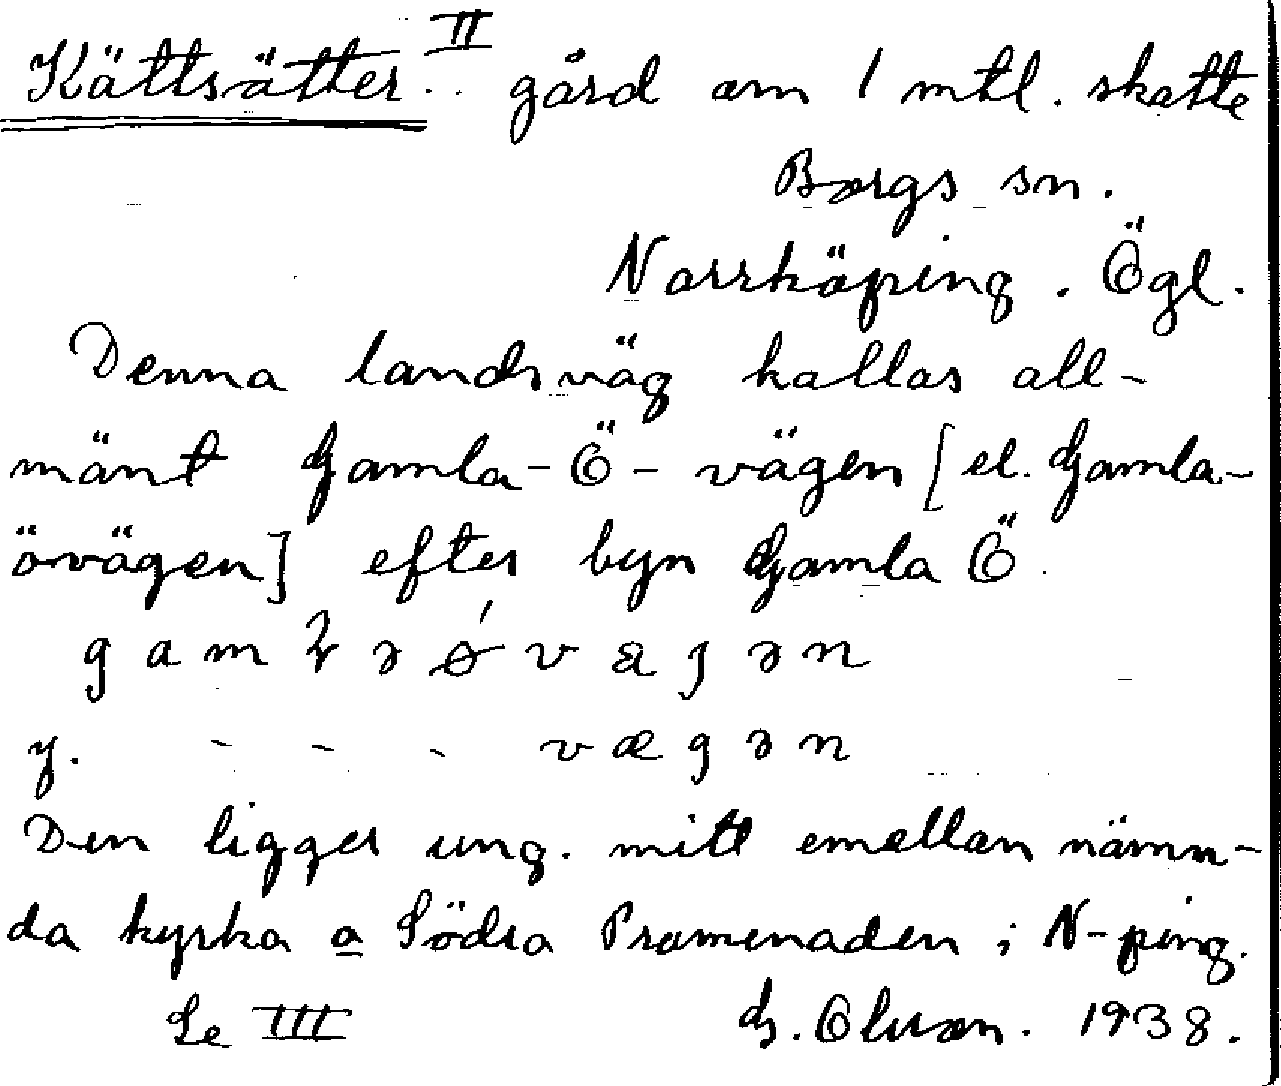 Kättsätter II gård om 1 mtl. skatte
Borgs sn.
Norrköping. Ögl.
Denna landsväg kallas all-
mänt Gamla-Ö-vägen [el. Gamla-
övägen] efter byn Gamla Ö.
gamɫəǿvægən
y. - - - vægən
Den ligger ung. mitt emellan nämn-
da kyrka o Södra Promenaden i N-ping.
Se III G. Olson. 1938.